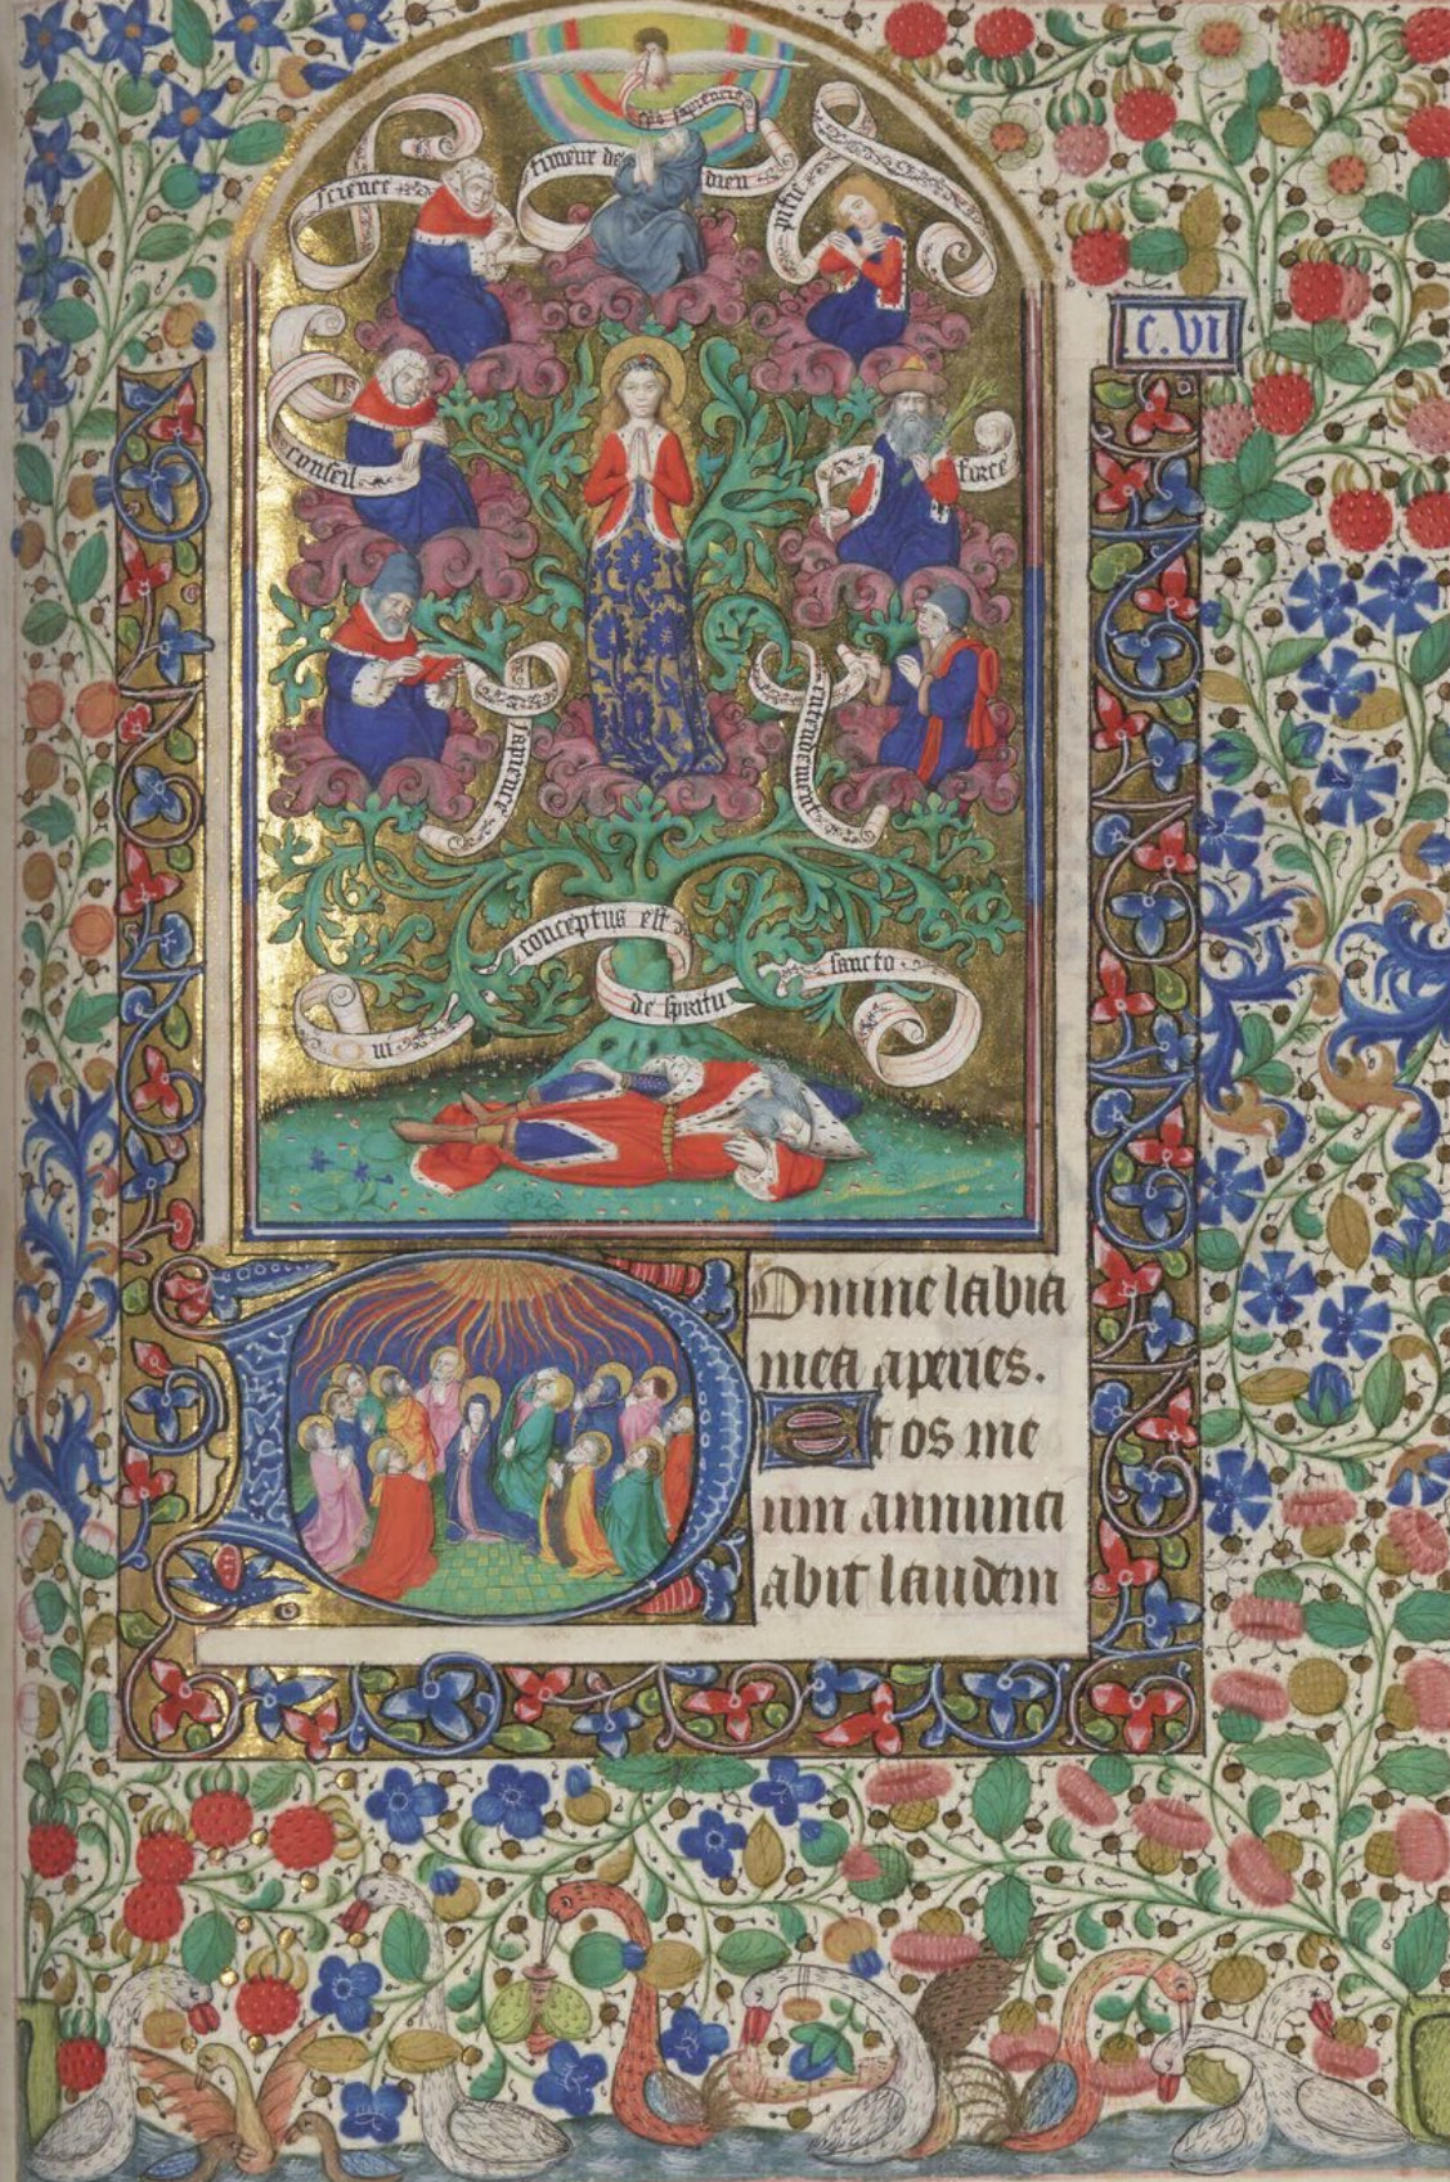 don sapiencie
timeur de dieu
science
pitié
c. vi
conseil
force
sapience
entendement
Qui conceptus est
de spiritu sancto
Domine labia
mea aperies.
Et os me
um annunci
abit laudem